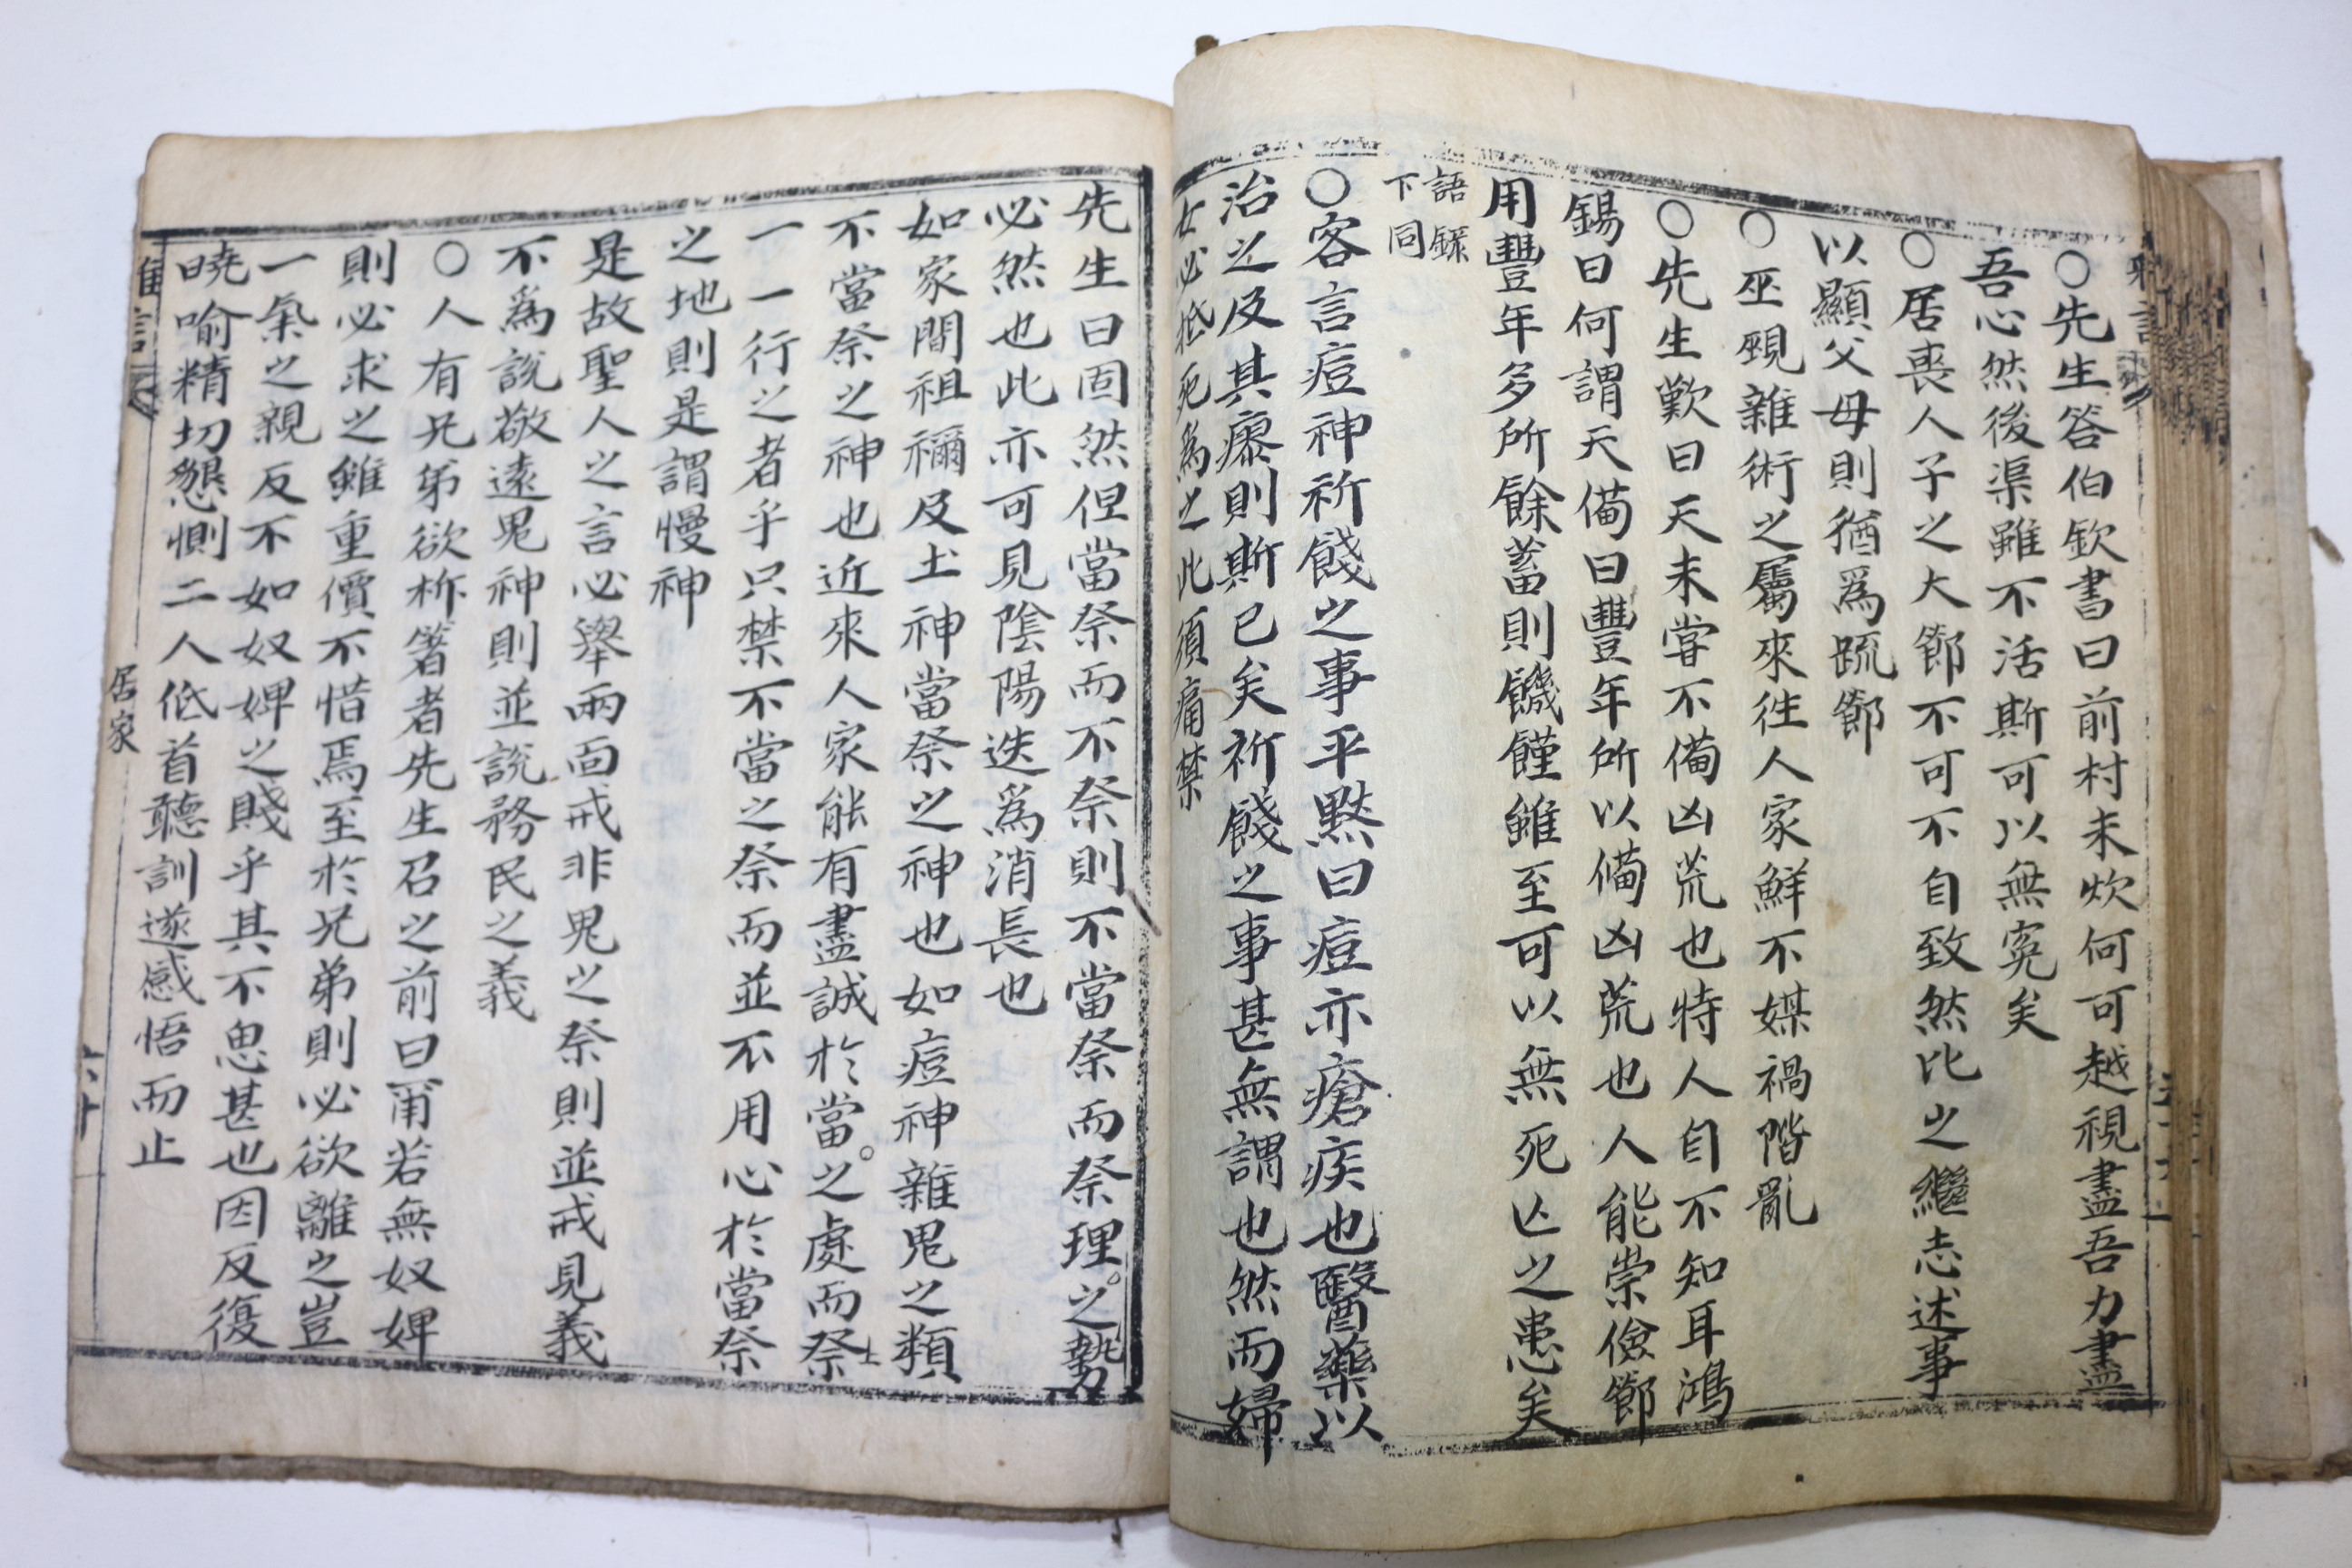 ○先生答伯欽書曰前村未炊何可越視盡吾力盡
吾心然後渠雖不活斯可以無寃矣
○居喪人子之大節不可不自致然比之繼志述事
以顯父母則猶爲疏節
○巫覡雜術之屬來往人家鮮不媒禍階亂
○先生歎曰天未甞不備凶荒也特人自不知耳鴻
錫曰何謂天備曰豐年所以備凶荒也人能崇儉節
用豐年多所餘蓄則饑饉雖至可以無死亡之患矣
語錄
下同
○客言痘神祈餞之事平黙曰痘亦瘡疾也醫藥以
治之及其瘳則斯已矣祈餞之事甚無謂也然而婦
女必抵死爲之此須痛禁
先生曰固然但當祭而不祭則不當祭而祭理之勢
必然也此亦可見陰陽迭爲消長也
如家間祖禰及土神當祭之神也如痘神雜鬼之類
不當祭之神也近來人家能有盡誠於當之處而祭
一一行之者乎只禁不當之祭而並不用心於當祭
之地則是謂慢神
是故聖人之言必擧兩面戒非鬼之祭則並戒見義
不爲說敬遠鬼神則並說務民之義
○人有兄弟欲析箸者先生召之前曰甭若無奴婢
則必求之雖重價不惜焉至於兄弟則必欲離之豈
一氣之親反不如奴婢之賤乎其不思甚也因反復
曉喻精切懇惻二人低首聽訓遂感悟而止
居家